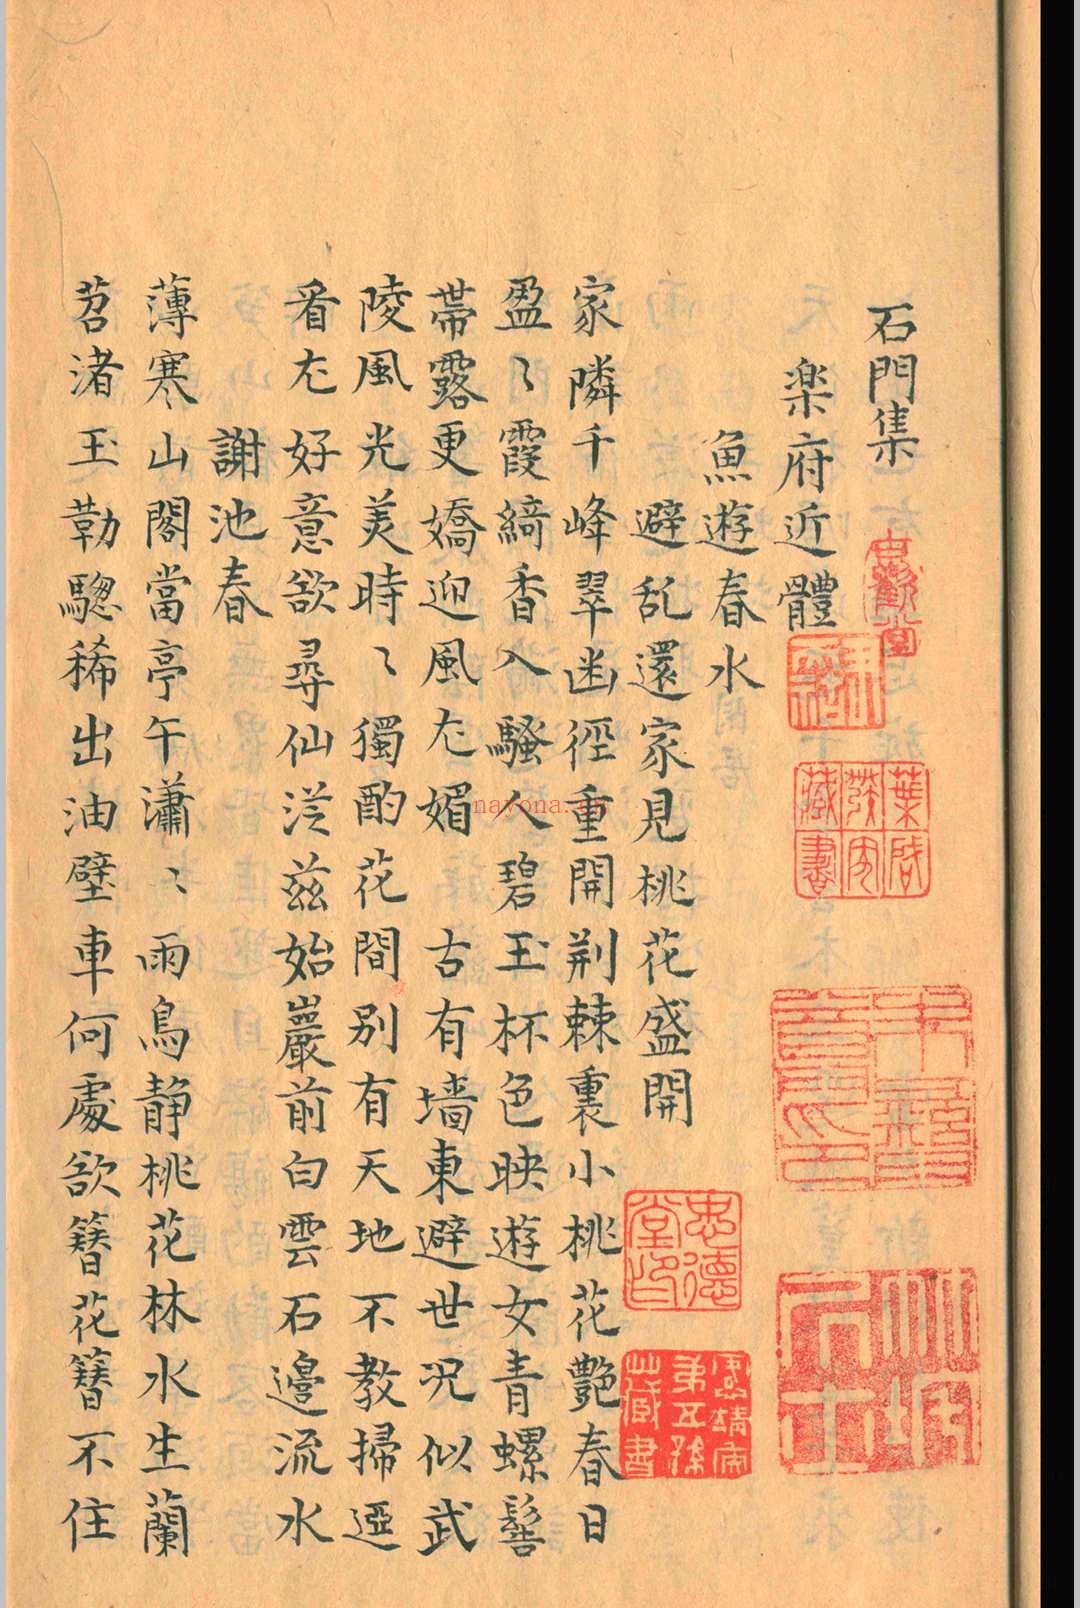 石門集
楽府近體
魚遊春水
避乱還家見桃花盛開
家隣千峰翠幽徑重開荆棘裏小桃花艷春日
盈〻霞綺香入騷人碧玉杯色映遊女青螺髻
帶露更嬌迎風尤媚 古有墙東避世況似武
陵風光美時〻獨酌花間别有天地不教掃逕
看尤好意欲尋仙從兹始巖前白雲石邉流水
謝池春
薄寒山閣當亭午瀟〻雨鳥静桃花林水生蘭
苕渚玉勒驄稀出油壁車何處欲簪花簪不住
葉啓藏書
忠德堂印
第五孫藏書
nayona.cn